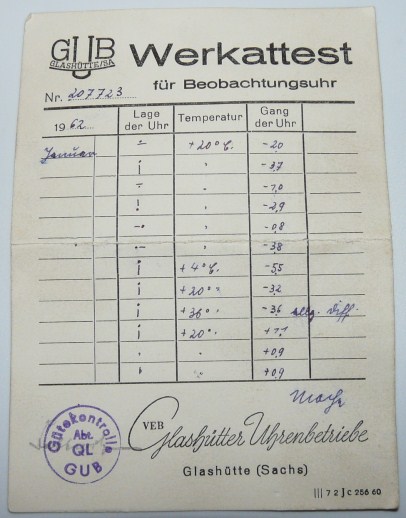 GUB Werkattest
GLASHÜTTE/SA
für Beobachtungsuhr
Nr. 207723
1962 Lage der Uhr Temperatur Gang der Uhr
Januar +20° C. -2,0
" -3,7
" -7,0
" -2,9
" -0,8
" -3,8
+4° C. -5,5
+20° " -3,2
+36° " -3,6 allg. Diff.
+20° " +1,1
" +0,9
" +0,9
Gütekontrolle
Abt.
QL
GUB
VEB Glashütter Uhrenbetriebe
Glashütte (Sachs)
III 7 2 J C 256 60